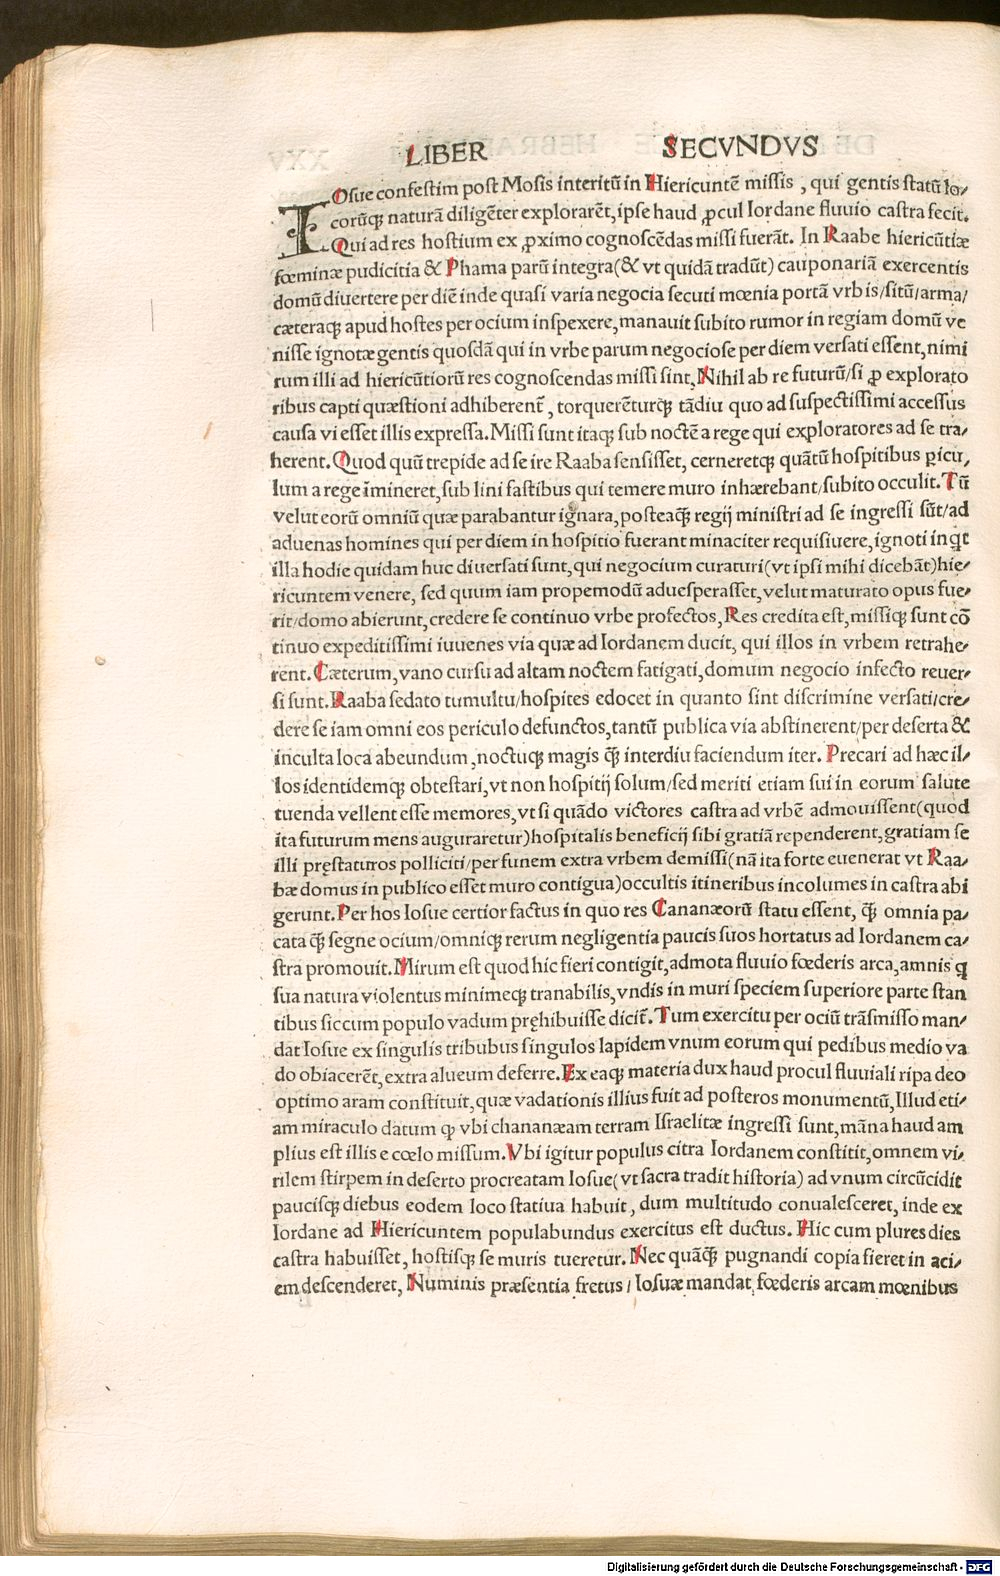 LIBER SECVNDVS
IOsue confestim post Mosis interitū in Hiericuntē missis , qui gentis statū lo⸗
corūq; naturā diligēter explorarēt, ipse haud ꝓcul Iordane fluuio castra fecit.
Qui ad res hostium ex ꝓximo cognoscēdas missi fuerāt. In Raabe hiericūtiæ
fœminæ pudicitia & Phama parū integra(& vt quidā tradūt) cauponariā exercentis
domū diuertere per diē inde quasi varia negocia secuti mœnia portā vrbis/sitū/arma/
cæteraq; apud hostes per ocium inspexere, manauit subito rumor in regiam domū ve
nisse ignotæ gentis quosdā qui in vrbe parum negociose per diem versati essent, nimi
rum illi ad hiericūtiorū res cognoscendas missi sint, Nihil ab re futurū/si ꝓ explorato
ribus capti quæstioni adhiberent̄, torquerēturq; tādiu quo ad suspectissimi accessus
causa vi esset illis expressa. Missi sunt itaq; sub noctē a rege qui exploratores ad se tra⸗
herent. Quod quū trepide ad se ire Raaba sensisset, cerneretq; quātū hospitibus ꝑicu⸗
lum a rege īmineret, sub lini fastibus qui temere muro inhærebant/subito occulit. Tū
velut eorū omniū quæ parabantur ignara, posteaq̄ regij ministri ad se ingressi sūt/ad
aduenas homines qui per diem in hospitio fuerant minaciter requisiuere, ignoti inq̄t
illa hodie quidam huc diuersati sunt, qui negocium curaturi(vt ipsi mihi dicebāt)hie⸗
ricuntem venere, sed quum iam propemodū aduesperasset, velut maturato opus fue⸗
rit/domo abierunt, credere se continuo vrbe profectos, Res credita est, missiq; sunt cō
tinuo expeditissimi iuuenes via quæ ad Iordanem ducit, qui illos in vrbem retrahe⸗
rent. Cæterum, vano cursu ad altam noctem fatigati, domum negocio infecto reuer⸗
si sunt. Raaba sedato tumultu/hospites edocet in quanto sint discrimine versati/cre⸗
dere se iam omni eos periculo defunctos, tantū publica via abstinerent/per deserta &
inculta loca abeundum, noctuq; magis q̄ interdiu faciendum iter. Precari ad hæc il⸗
los identidemq; obtestari, vt non hospitij solum/sed meriti etiam sui in eorum salute
tuenda vellent esse memores, vt si quādo victores castra ad vrbē admouissent(quod
ita futurum mens auguraretur)hospitalis beneficij sibi gratiā rependerent, gratiam se
illi pręstaturos polliciti/per funem extra vrbem demissi(nā ita forte euenerat vt Raa⸗
bæ domus in publico esset muro contigua)occultis itineribus incolumes in castra abi
gerunt. Per hos Iosue certior factus in quo res Cananæorū statu essent, q̄ omnia pa⸗
cata q̄ segne ocium/omniq; rerum negligentia paucis suos hortatus ad Iordanem ca⸗
stra promouit. Mirum est quod hic fieri contigit, admota fluuio fœderis arca, amnis q
sua natura violentus minimeq; tranabilis, vndis in muri speciem superiore parte stan
tibus siccum populo vadum pręhibuisse dicit̄. Tum exercitu per ociū trāsmisso man⸗
dat Iosue ex singulis tribubus singulos lapidem vnum eorum qui pedibus medio va
do obiacerēt, extra alueum deferre. Ex eaq; materia dux haud procul fluuiali ripa deo
optimo aram constituit, quæ vadationis illius fuit ad posteros monumentū, Illud eti⸗
am miraculo datum ꝙ vbi chananæam terram Israelitæ ingressi sunt, māna haud am
plius est illis e cœlo missum. Vbi igitur populus citra Iordanem constitit, omnem vi⸗
rilem stirpem in deserto procreatam Iosue(vt sacra tradit historia) ad vnum circūcidit
paucisq; diebus eodem loco statiua habuit, dum multitudo conualesceret, inde ex
Iordane ad Hiericuntem populabundus exercitus est ductus. Hic cum plures dies
castra habuisset, hostisq; se muris tueretur. Nec quāq̄ pugnandi copia fieret in aci⸗
em descenderet, Numinis præsentia fretus/ Iosuæ mandat, fœderis arcam mœnibus
Digitalisierung gefördert durch die Deutsche Forschungsgemeinschaft - DFG